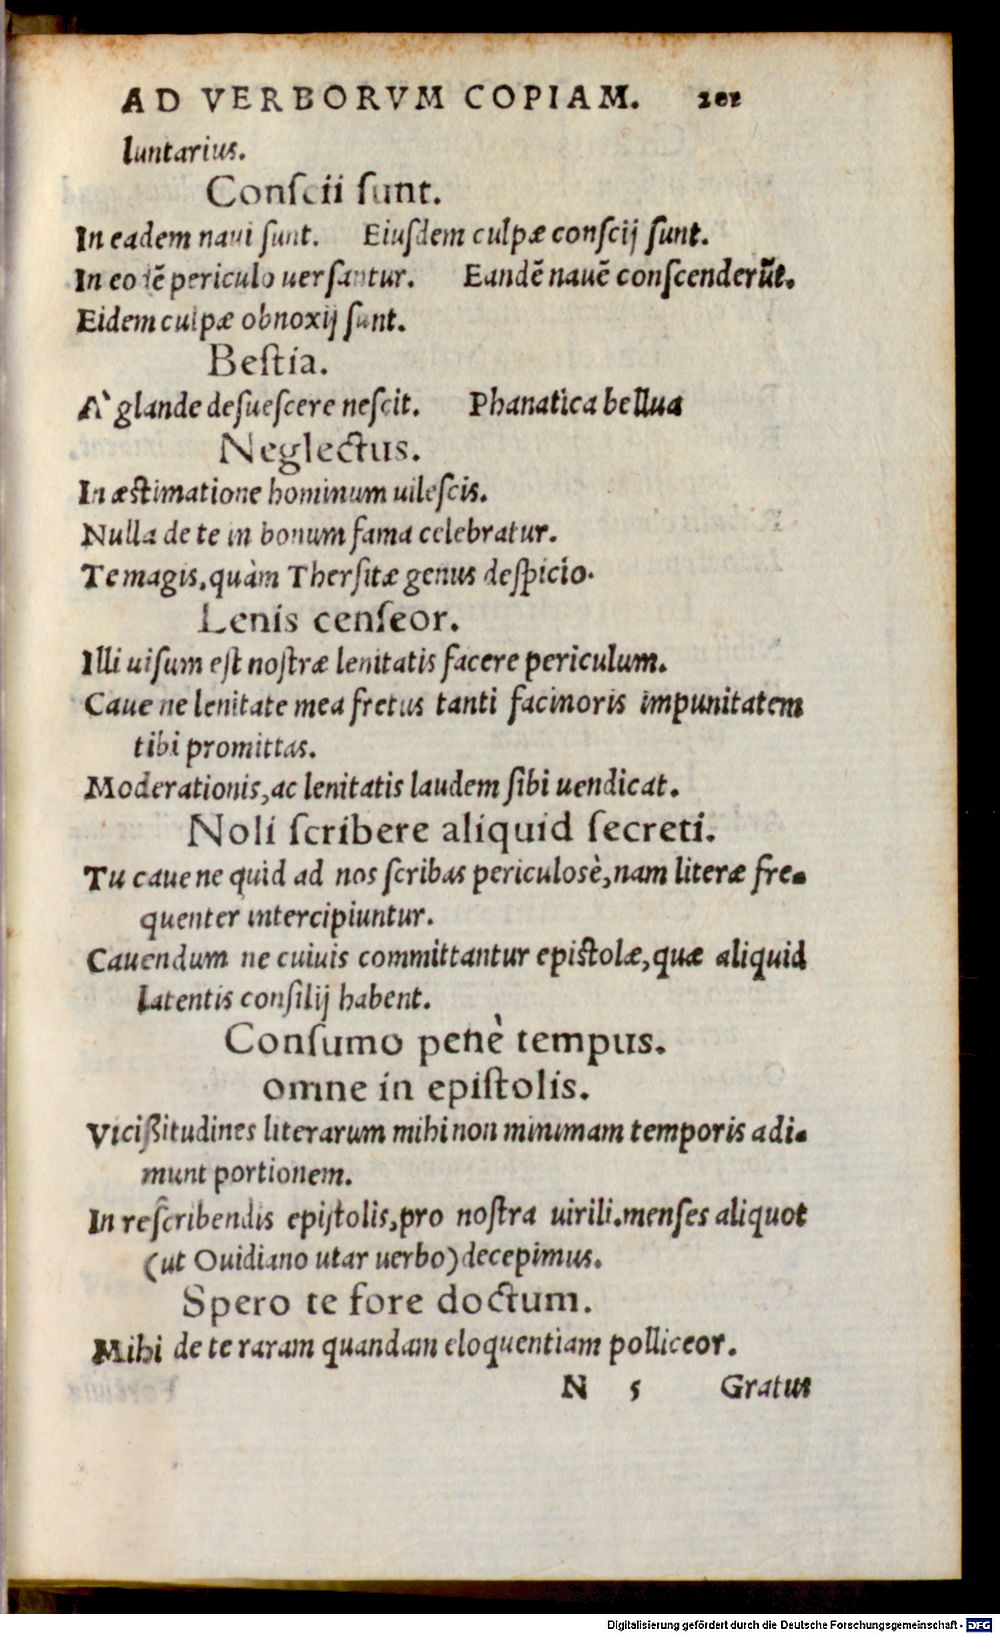 AD VERBORVM COPIAM. 201
luntarius.
Conſcii ſunt.
In eadem naui ſunt. Eiuſdem culpæ conſcij ſunt.
In eodē periculo uerſantur. Eandē nauē conſcenderūt.
Eidem culpæ obnoxij ſunt.
Beſtia.
A` glande deſueſcere neſcit. Phanatica bellua
Neglectus.
In æſtimatione hominum uileſcis.
Nulla de te in bonum fama celebratur.
Te magis, quàm Therſitæ genus deſpicio.
Lenis cenſeor.
Illi uiſum eſt noſtræ lenitatis facere periculum.
Caue ne lenitate mea fretus tanti facinoris impunitatem
tibi promittas.
Moderationis, ac lenitatis laudem ſibi uendicat.
Noli ſcribere aliquid ſecreti.
Tu caue ne quid ad nos ſcribas periculosè, nam literæ fre-
quenter intercipiuntur.
Cauendum ne cuiuis committantur epiſtolæ, quæ aliquid
latentis conſilij habent.
Conſumo penè tempus.
omne in epiſtolis.
Viciſſitudines literarum mihi non minimam temporis adi-
munt portionem.
In reſcribendis epiſtolis, pro noſtra uirili. menſes aliquot
(ut Ouidiano utar uerbo) decepimus.
Spero te fore doctum.
Mihi de te raram quandam eloquentiam polliceor.
N 5 Gratus
Digitalisierung gefördert durch die Deutsche Forschungsgemeinschaft - DFG